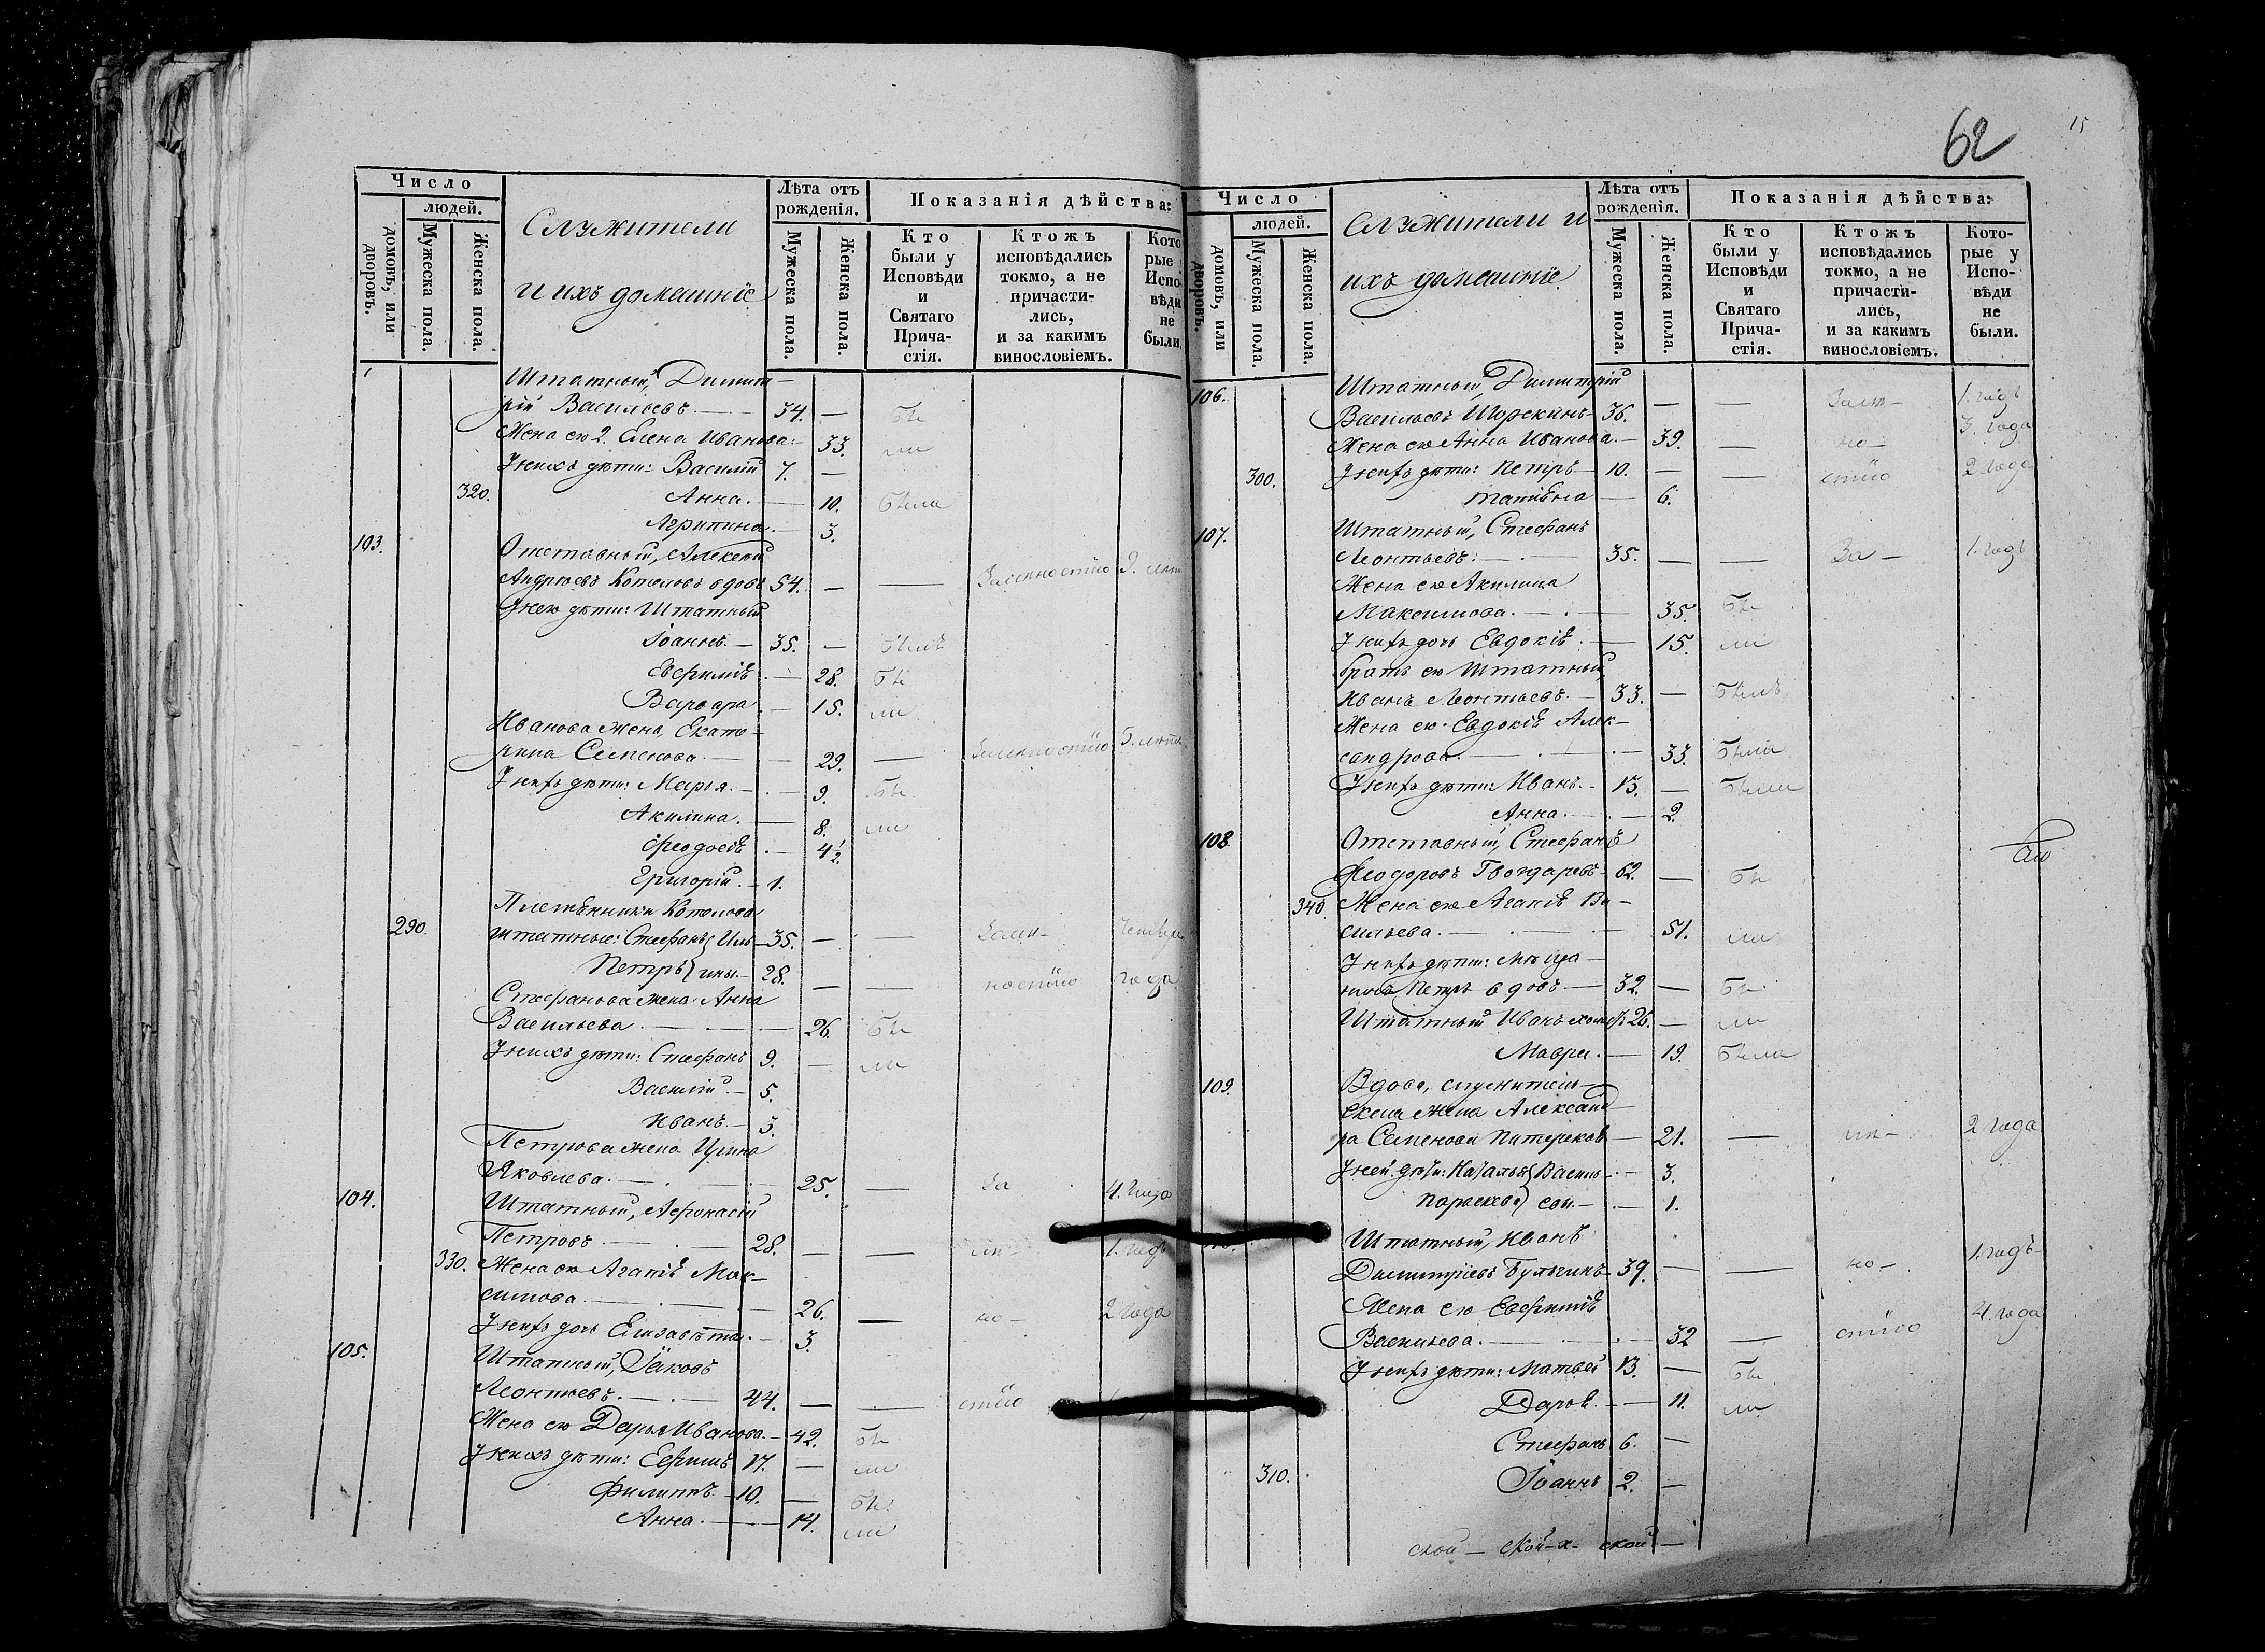 62
15
Число
людей.
домовъ, или дворовъ.
Мужеска пола.
Женска пола.
Служители
и ихъ домашніе
Лѣта отъ
рожденія.
Мужеска пола.
Женска пола.
Показанія дѣйства:
Кто
были у
Исповѣди
и
Святаго
Прича-
стія.
Ктожъ
исповѣдались
токмо, а не
причасти-
лись,
и за какимъ
винословіемъ.
Кото
рые
Испо
вѣди
не
были.
Штатный, Димит-
рій Васильевъ. — 34. — бы
Жена его 2. Елена Иванова. — 33. ли
У нихъ дѣти: Василій 7. —
320. Анна. — 10. была
Агрипина. — 3.
103. Отставный, Алексѣй
Андреевъ Котомовъ вдовъ 54. — — Заленностію 9. лѣт
У него дѣти: Штатный
Іоаннъ. — 35. — былъ
Евфимія . — 28. бы
Варвара . — 15. ли
Иванова жена, Екате-
рина Семенова. — 29. — Заленностію 5. лѣтъ
У нихъ дѣти: Марья. — 9. бы
Акилина. — 8. ли
Ѳеодосія . — 4½
Григорій. — 1.
Племянники Котомова
290. штатные: Стефанъ Иль — 35. — — Залѣ-
Петръ ины. — 28. — — ностію года
Стефанова жена Анна
Васильева. — 26. бы
У нихъ дѣти: Стефанъ 9. — ли
Василій. — 5.
Иванъ. — 3.
Петрова жена Ирина
Яковлева. — 25. — За 4. года
104. Штатный, Аѳонасій
Петровъ. — 28. — — лѣ- 1. годъ
330. Жена его Агапія Мак-
симова. — 26. — но- 2 года
У нихъ дочь Елизавета. — 3.
105. Штатный, Іаковъ
Леонтьевъ. — 44. — — стію
Жена его Дарья Иванова. — 42. бы
У нихъ дѣти: Ефимъ 17. — ли
Филиппъ — 10. — бы
Анна. — 14. ли
Число
людей.
домовъ, или дворовъ.
Мужеска пола.
Женска пола.
Служители и
ихъ домашніе
Лѣта отъ
рожденія.
Мужеска пола.
Женска пола.
Показанія дѣйства:
Кто
были у
Исповѣди
и
Святаго
Прича-
стія.
Ктожъ
исповѣдались
токмо, а не
причасти-
лись,
и за какимъ
винословіемъ.
Кото-
рые у
Испо-
вѣди
не
были.
106. Штатный, Димитрій
Васильевъ Шорскинъ — 36. — — Залѣ- 1. годъ
Жена его Анна Иванова. — 39. — но- 3. года
300. У нихъ дѣти: Петръ — 10. — — стію 2 года
Татіана — 6.
107. Штатный, Стефанъ
Леонтьевъ. — 35. — — За- 1. годъ
Жена его Акилина
Максимова. — 35. бы
У нихъ дочь Евдокія. — 15. ли
братъ его Штатный,
Иванъ Леонтьевъ. — 33. — былъ
Жена его Евдокія Алек-
сандрова. — 33. была
У нихъ дѣти: Иванъ. — 13. — были
Анна. — 2.
108. Отставный, Стефанъ
Ѳеодоровъ Гвоздаревъ — 62. — бы
340. Жена его Агапія Ва-
сильева. — 51. ли
У нихъ дѣти: Мѣща-
нинъ Петръ вдовъ — 32. — бы
Штатный Иванъ холос 26. — ли
Мавра. — 19. была
109. Вдова, служитель-
ская жена Александ-
ра Семенова Питерсков. — 21. — лѣ- 2 года
У ней дѣти: Наталья Василь- — 3.
Параскева евы. — 1.
Штатный, Иванъ
Димитріевъ Булыгинъ — 39. — — но- 1. годъ
Жена его Евфимія
Васильева. — 32 — стію 4. года
У нихъ дѣти: Матвей 13. — бы
Дарья. — 11. ли
Стефанъ 6. —
310. Іоаннъ 2. —